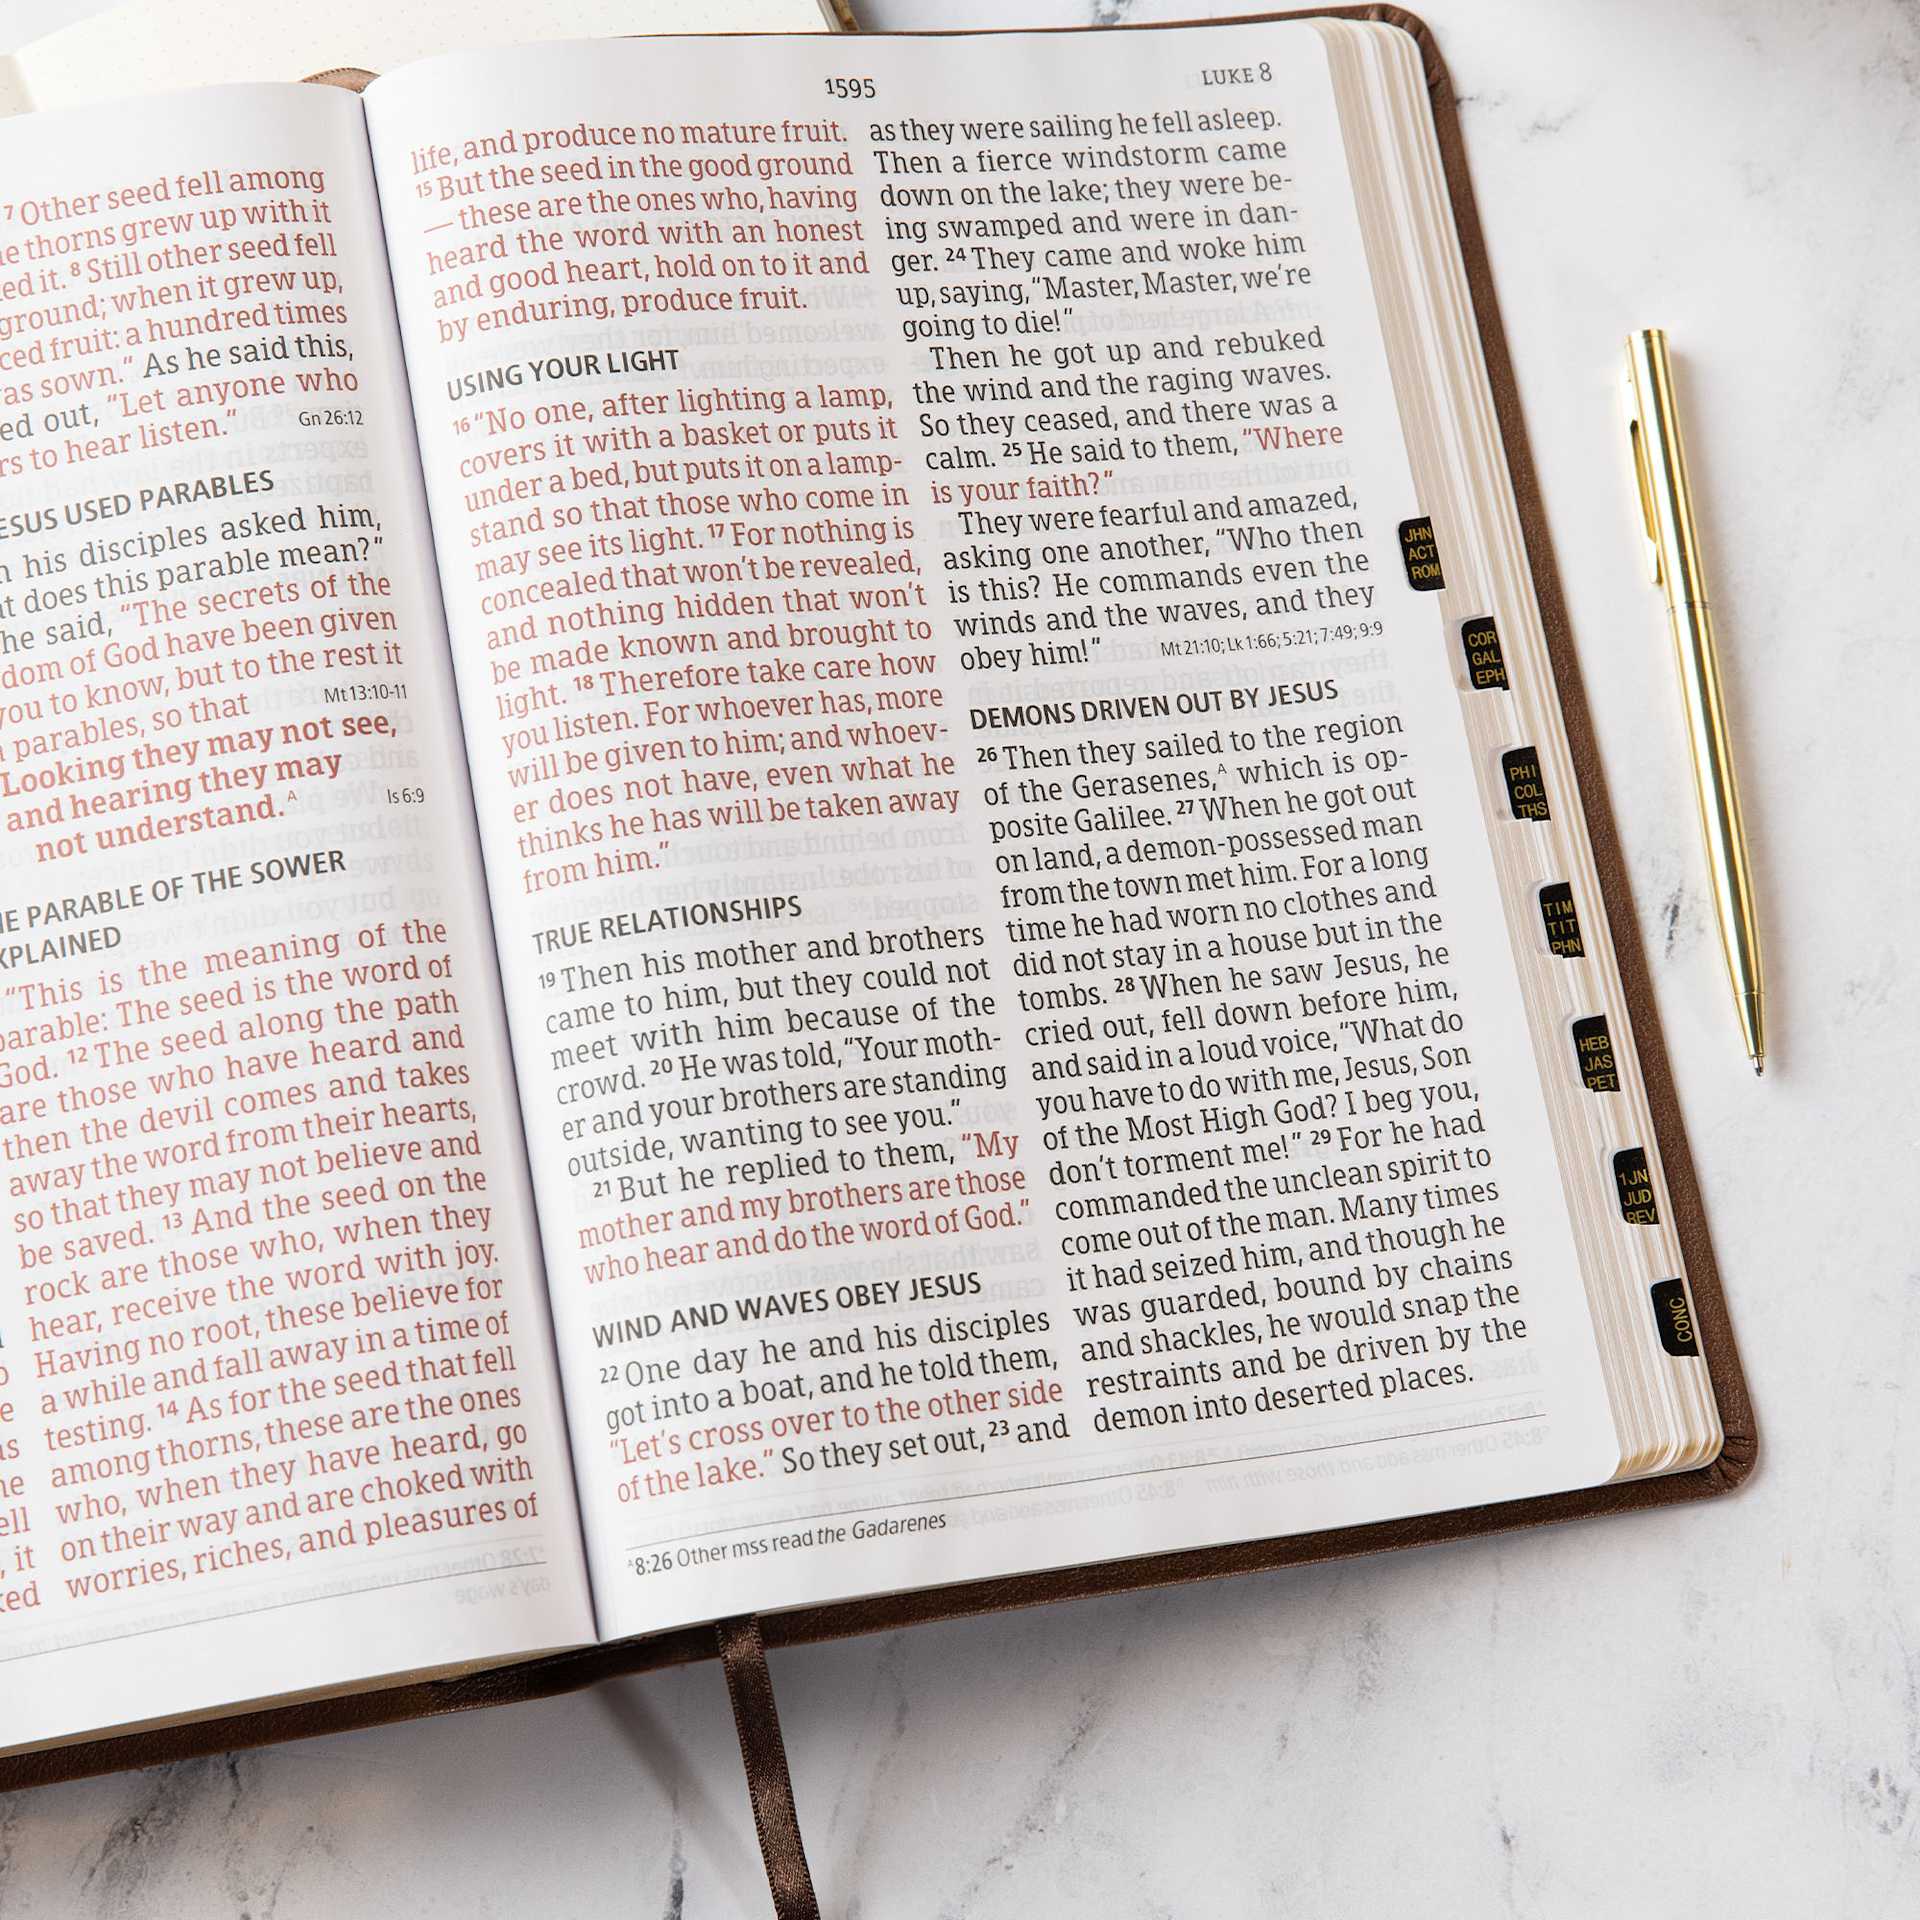 7 Other seed fell among
thorns grew up with it
it. 8 Still other seed fell
ground; when it grew up,
fruit: a hundred times
was sown.” As he said this,
out, “Let anyone who
to hear listen.” Gn 26:12
JESUS USED PARABLES
his disciples asked him,
does this parable mean?”
he said, “The secrets of the
of God have been given
you to know, but to the rest it
parables, so that Mt 13:10-11
Looking they may not see,
and hearing they may
not understand.A Is 6:9
PARABLE OF THE SOWER
EXPLAINED
“This is the meaning of the
parable: The seed is the word of
God. 12 The seed along the path
are those who have heard and
then the devil comes and takes
away the word from their hearts,
so that they may not believe and
be saved. 13 And the seed on the
rock are those who, when they
hear, receive the word with joy.
Having no root, these believe for
a while and fall away in a time of
testing. 14 As for the seed that fell
among thorns, these are the ones
who, when they have heard, go
on their way and are choked with
worries, riches, and pleasures of
1595
LUKE 8
life, and produce no mature fruit.
15 But the seed in the good ground
— these are the ones who, having
heard the word with an honest
and good heart, hold on to it and
by enduring, produce fruit.
USING YOUR LIGHT
16 “No one, after lighting a lamp,
covers it with a basket or puts it
under a bed, but puts it on a lamp-
stand so that those who come in
may see its light. 17 For nothing is
concealed that won’t be revealed,
and nothing hidden that won’t
be made known and brought to
light. 18 Therefore take care how
you listen. For whoever has, more
will be given to him; and whoev-
er does not have, even what he
thinks he has will be taken away
from him.”
TRUE RELATIONSHIPS
19 Then his mother and brothers
came to him, but they could not
meet with him because of the
crowd. 20 He was told, “Your moth-
er and your brothers are standing
outside, wanting to see you.”
21 But he replied to them, “My
mother and my brothers are those
who hear and do the word of God.”
WIND AND WAVES OBEY JESUS
22 One day he and his disciples
got into a boat, and he told them,
“Let’s cross over to the other side
of the lake.” So they set out, 23 and
as they were sailing he fell asleep.
Then a fierce windstorm came
down on the lake; they were be-
ing swamped and were in dan-
ger. 24 They came and woke him
up, saying, “Master, Master, we’re
going to die!”
Then he got up and rebuked
the wind and the raging waves.
So they ceased, and there was a
calm. 25 He said to them, “Where
is your faith?”
They were fearful and amazed,
asking one another, “Who then
is this? He commands even the
winds and the waves, and they
obey him!” Mt 21:10; Lk 1:66; 5:21; 7:49; 9:9
DEMONS DRIVEN OUT BY JESUS
26 Then they sailed to the region
of the Gerasenes,A which is op-
posite Galilee. 27 When he got out
on land, a demon-possessed man
from the town met him. For a long
time he had worn no clothes and
did not stay in a house but in the
tombs. 28 When he saw Jesus, he
cried out, fell down before him,
and said in a loud voice, “What do
you have to do with me, Jesus, Son
of the Most High God? I beg you,
don’t torment me!” 29 For he had
commanded the unclean spirit to
come out of the man. Many times
it had seized him, and though he
was guarded, bound by chains
and shackles, he would snap the
restraints and be driven by the
demon into deserted places.
A8:26 Other mss read the Gadarenes
JHN
ACT
ROM
COR
GAL
EPH
PHI
COL
THS
TIM
TIT
PHN
HEB
JAS
PET
1JN
JUD
REV
CONC